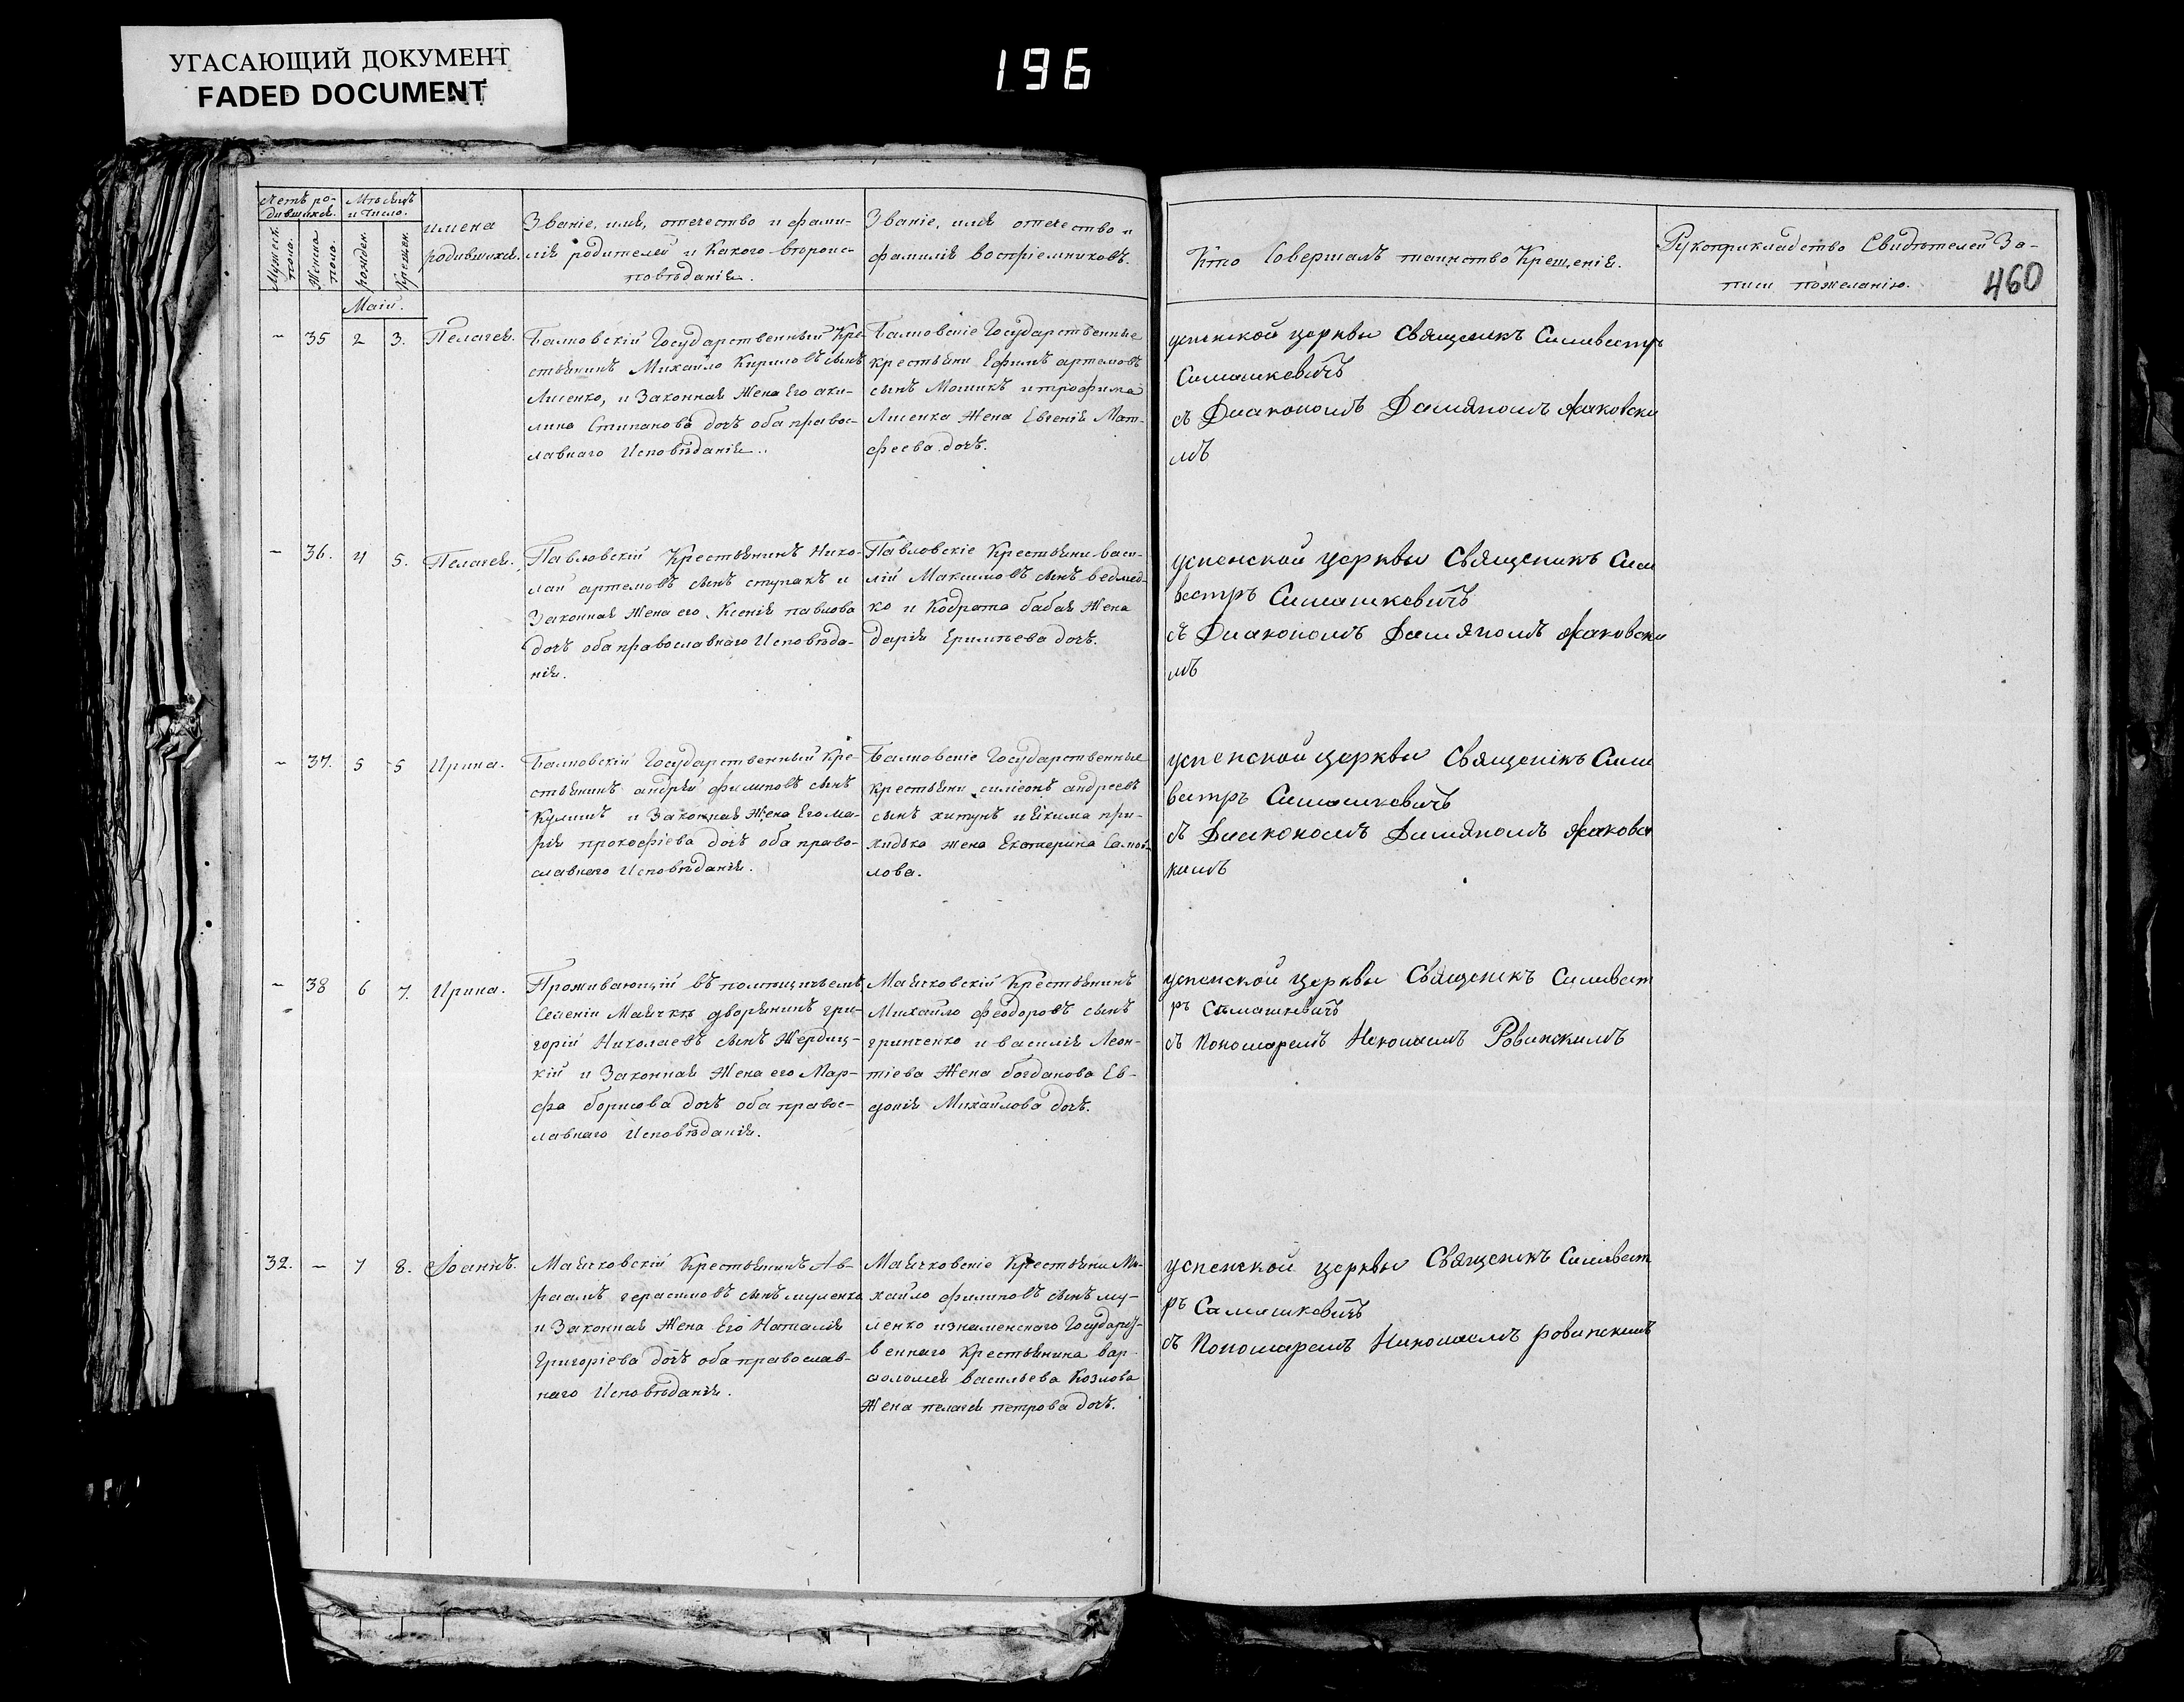 УГАСАЮЩИЙ ДОКУМЕНТ
FADED DOCUMENT
196
460
Счетъ ро-
дившихся.
Мужеск.
пола.
Женска
пола.
Мѣсяцъ
и число.
рожден.
крещен.
имена
родившихся.
Званіе, имя, отечество и фами-
лія родителей и Какого вѣроис-
повѣданія.
Званіе, имя отечество и
фамилія воспріемниковъ.
Кто Совершалъ таинство Крещенія.
Рукоприкладство Свидѣтелей За-
писи по желанію.
Маій.
– 35 2 3. Пелагея.
Балковскій Государственный Кре-
стьянинъ Михайло Кириловъ сынъ
Лисенко, и Законная Жена Его аки-
лина Стипанова дочь оба правос-
лавнаго Исповѣданія.
Балковскіе Государственные
крестьяни Ефимъ артемовъ
сынъ и трофима
Лисенка Жена Евгенія Мат-
феева дочь.
успенской церкви Священикъ Силивестръ
Симашкевичъ
съ Диакономъ Дамяномъ Жаковски
мъ
– 36. 4 5. Пелагея.
Павловскій Крестьянинъ Нико-
лай артемовъ сынъ ступакъ и
Законная Жена его Ксенія павлова
дочь оба православнаго Исповѣда-
нія.
Павловскіе Крестьяни васи-
лій Максимовъ сынъ ведмед-
ко и Кодрата бабая Жена
дарія Ермиьева дочь.
успенской церкви Священикъ Сили
вестръ Симашкевичъ
съ Диакономъ Дамяномъ Жаковски
мъ
– 37. 5 5 Ирина.
Балковскій Государственный Кре-
стьянинъ андрей филиповъ сынъ
Кулишъ и Законная Жена Его ма-
рія прокофіева дочь оба право-
славнаго Исповѣданія.
Балковскіе Государственные
крестьяни симеонъ андреевъ
сынъ хитунъ и Екима при-
хидька жена Екатерина Самой-
лова.
успенской церкви Священікъ Сили
вестръ Симашкевичъ
съ Диакономъ Дамяномъ Жаковс
кимъ
– 38 6 7. Ирина.
Проживающій въ помѣщичьемъ
Селеніи Маячкѣ дворянинъ гри-
горій Николаевъ сынъ Жердиц-
кій и Законная Жена его Мар-
фа борисова дочь оба правос-
лавнаго Исповѣданія.
Маячковскій Крестьянинъ
Михайло феодоровъ сынъ
гринченко и василія Леон-
тіева Жена богданова Ев-
докія Михайлова дочь.
успенской церкви Священикъ Силивест
ръ Симашкевичъ
съ Пономаремъ Николаемъ Ровинскимъ
32. – 7 8. Іоаннъ.
Маячковскій Крестьянинъ Ав-
раамъ герасимовъ сынъ муленко
и Законная Жена Его Наталія
Григоріева дочь оба православ-
наго Исповѣданія.
Маячковскіе Крестьяни Ми-
хайло филиповъ сынъ му-
ленко и знаменскаго Государ-
веннаго Крестьянина вар-
фоломея васильева Козлова
Жена пелагея петрова дочь.
успенской церкви Священикъ Силивест
ръ Симашкевичъ
съ Пономаремъ Николаемъ ровинскимъ